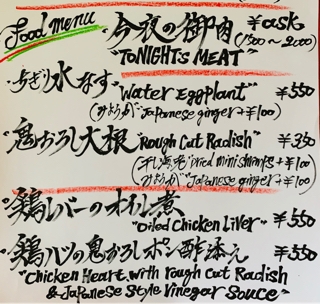 Food menu
・今夜の御肉 ¥ask
(1500〜2000)
"TONIGHTs MEAT"
・ちぎり水なす "Water Eggplant" ¥550
(みょうが "Japanese ginger" +¥100)
・鬼おろし大根 "Rough Cut Radish" ¥350
(干し海老 "Dried mini shrimps" +¥100)
(みょうが "Japanese ginger" +¥100)
・鶏レバーのオイル煮
"Oiled Chicken Liver" ¥550
・鶏ハツの鬼おろしポン酢添え ¥550
"Chicken Heart with rough Cut Radish
& Japanese Style Vinegar Souce"